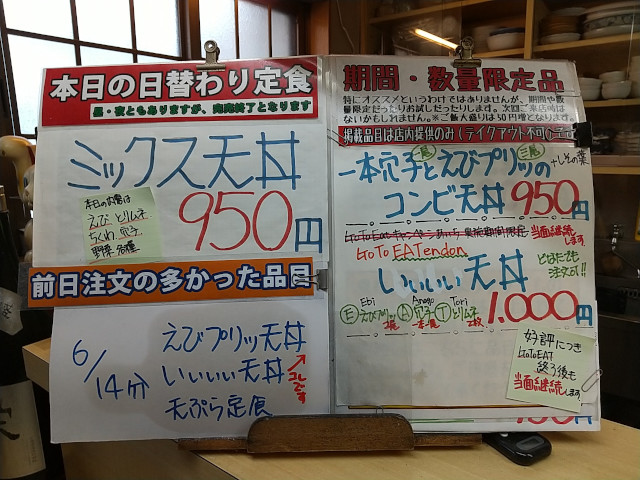 本日の日替わり定食
昼・夜ともありますが、完売終了となります
ミックス天丼
950円
本日のお魚は
えび とりムネ
ちくわ 穴子
野菜各種
前日注文の多かった品目
6/14分
えびプリッ天丼
いいいい天丼
天ぷら定食
コレです
期間・数量限定品
特にオススメというわけではありませんが、期間や数
量限定だったりお試しだったりします。次回ご来店時は
ないかもしれません。※ご飯大盛りは50円増となります。
掲載品目は店内提供のみ(テイクアウト不可)
一本穴子とえびプリッの
一尾 三尾
+しその葉
コンビ天丼 950円
GoToEatキャンペーン
当面継続します。
GoTo EATendon
いいいい天丼
どなたでも
注文可!!
Ebi Anago Tori
Eえびプリッ A穴子 Tとりムネ
二尾 一本 二枚
1.000円
好評につき
GoToEAT
終了後も
当面継続します。